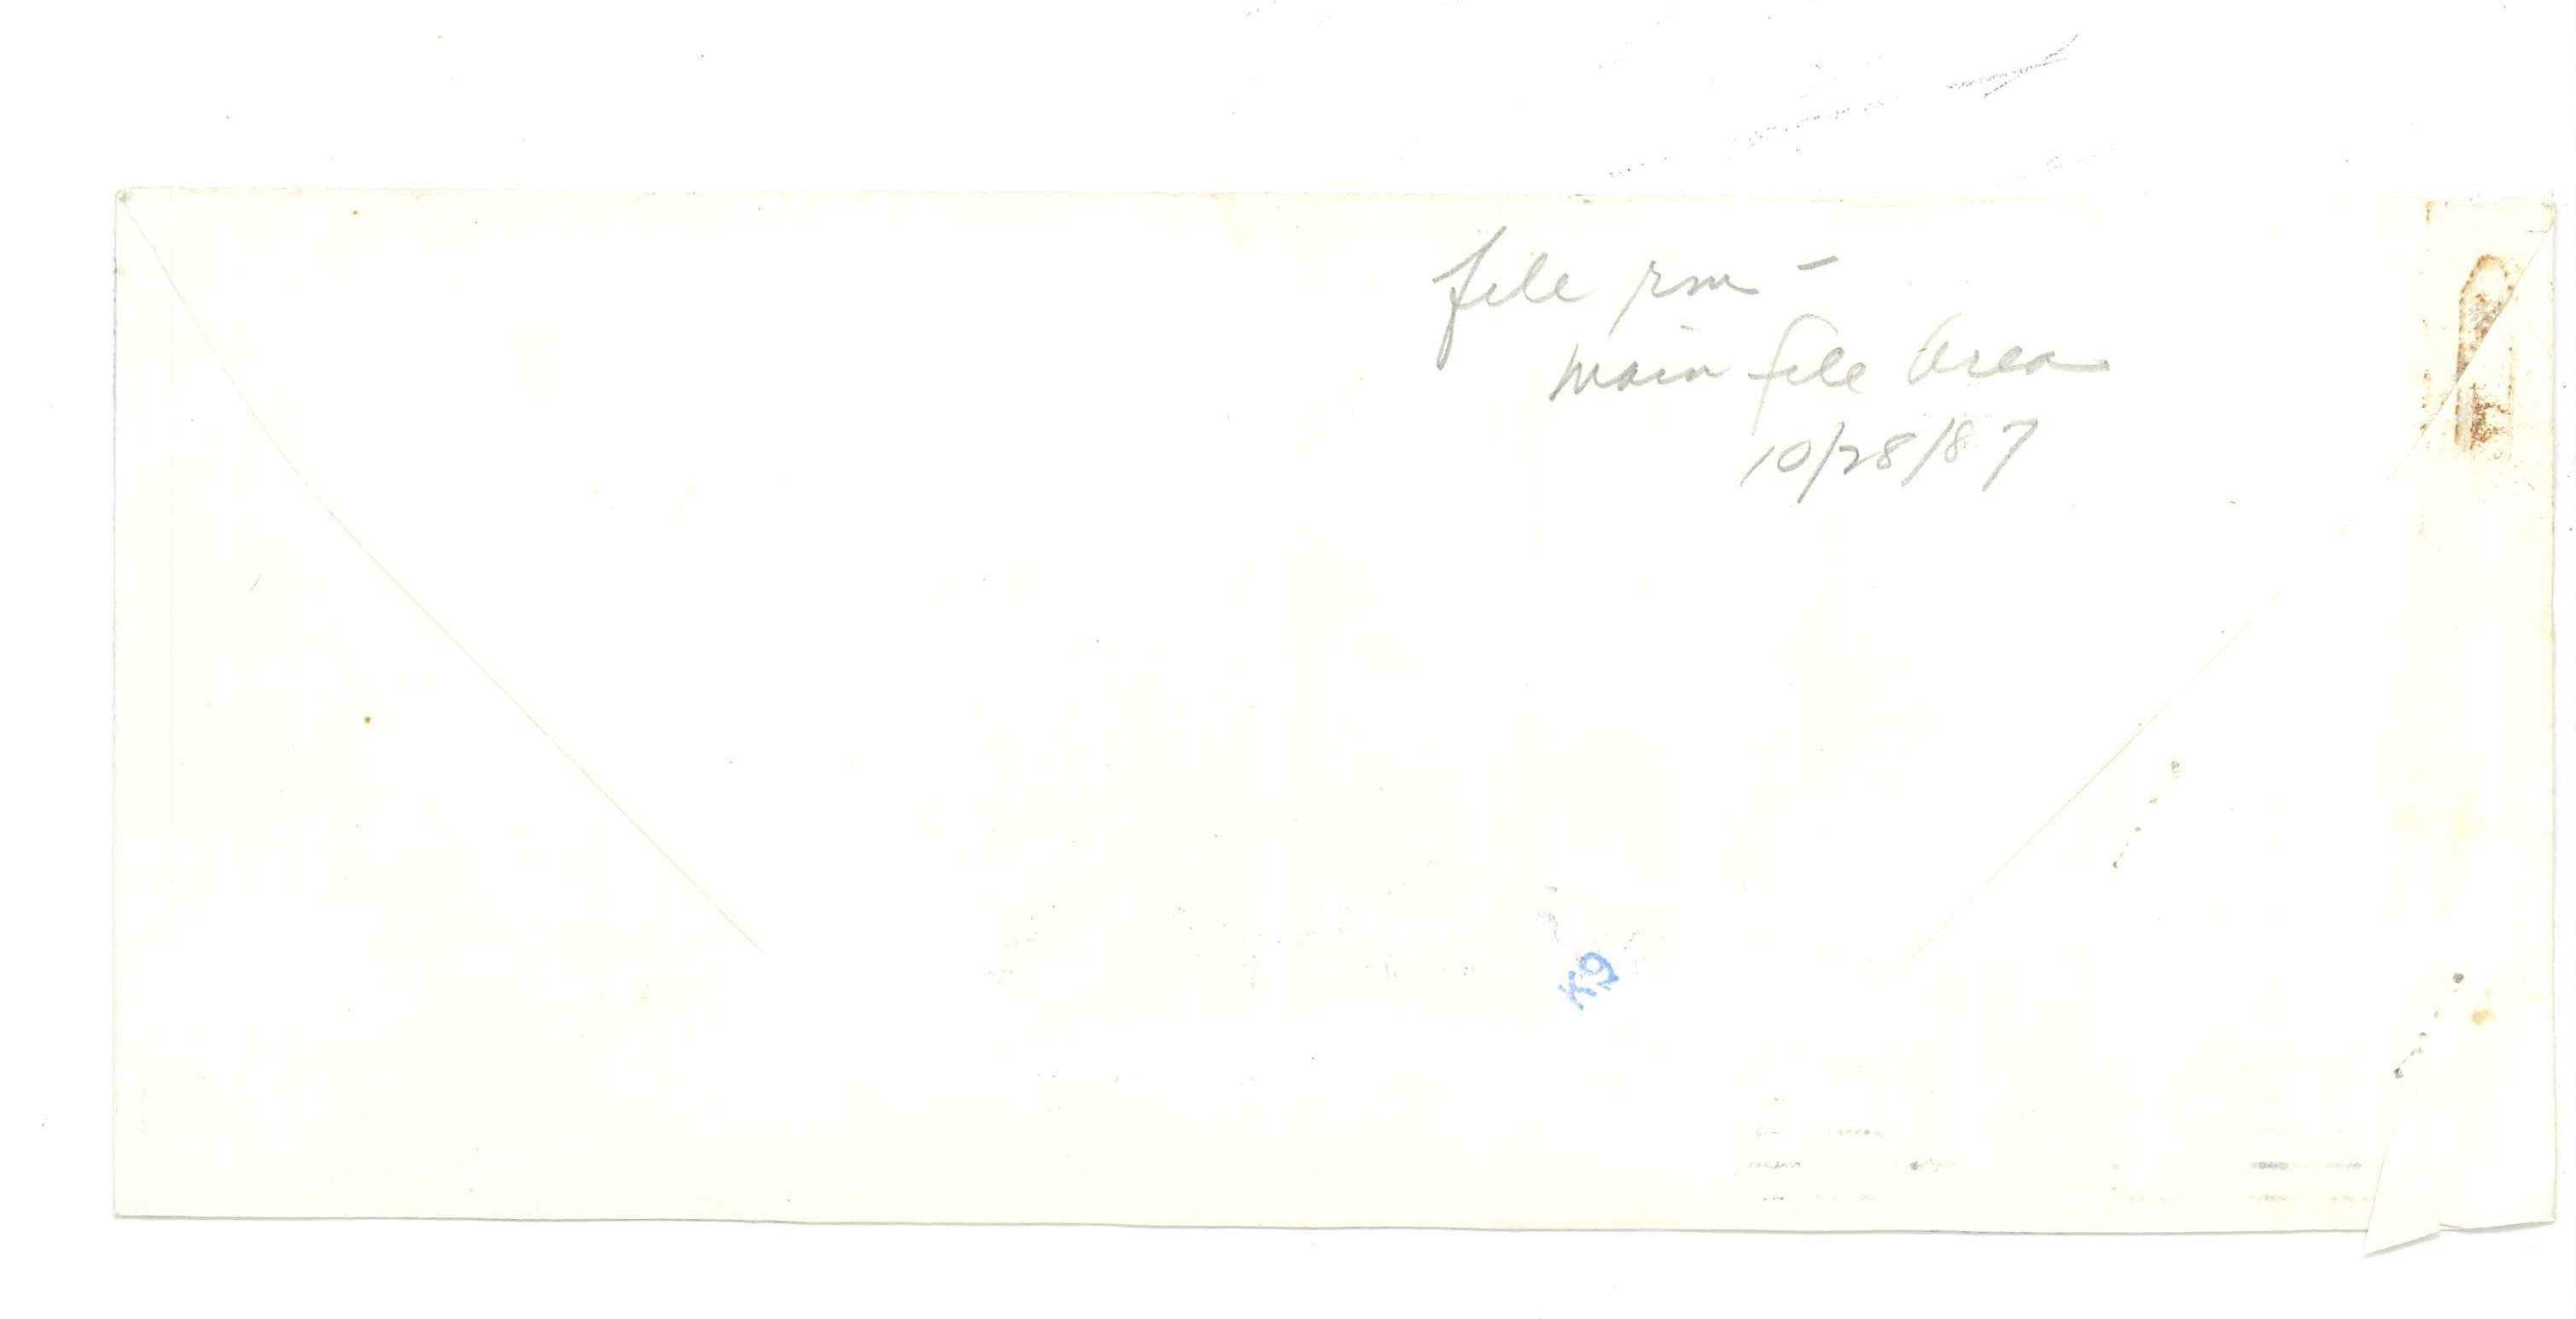 file rm -
main file area
10/28/87
K9